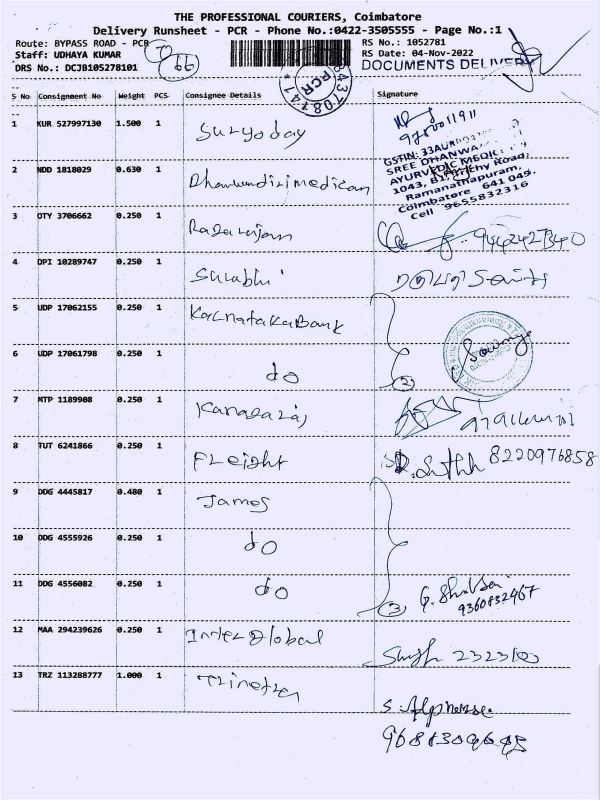 THE PROFESSIONAL COURIERS, Coimbatore
Delivery Runsheet - PCR - Phone No.:0422-3505555 - Page No.:1
Route: BYPASS ROAD - PCR
RS No.: 1052781
Staff: UDHAYA KUMAR
RS Date: 04-Nov-2022
DRS No.: DCJB105278101
66
DOCUMENTS DELIVERY
PCR
S No Consignment No Weight PCS Consignee Details Signature
1 KUR 527997130 1.500 1 Suryoday
9750011911
SREE DHANWA
AYURVEDIC MEDIC
Ramanathapuram,
Coimbatore 641 045.
Cell 9655832316
2 NDD 1818029 0.630 1
3 OTY 3706662 0.250 1 Rajarajan
9442427340
4 DPI 10289747 0.250 1 Surabhi
5 UDP 17062155 0.250 1 Karnataka Bank
6 UDP 17061798 0.250 1 do
2
Sowmya
7 MTP 1189908 0.250 1 Kanagaraj
8 TUT 6241866 0.250 1 Freight
8220976858
9 DDG 4445817 0.480 1 James
10 DDG 4555926 0.250 1 do
11 DDG 4556082 0.250 1 do
3
9360832467
12 MAA 294239626 0.250 1 Inter Global
13 TRZ 113288777 1.000 1 Trinetra
S. Alphonse